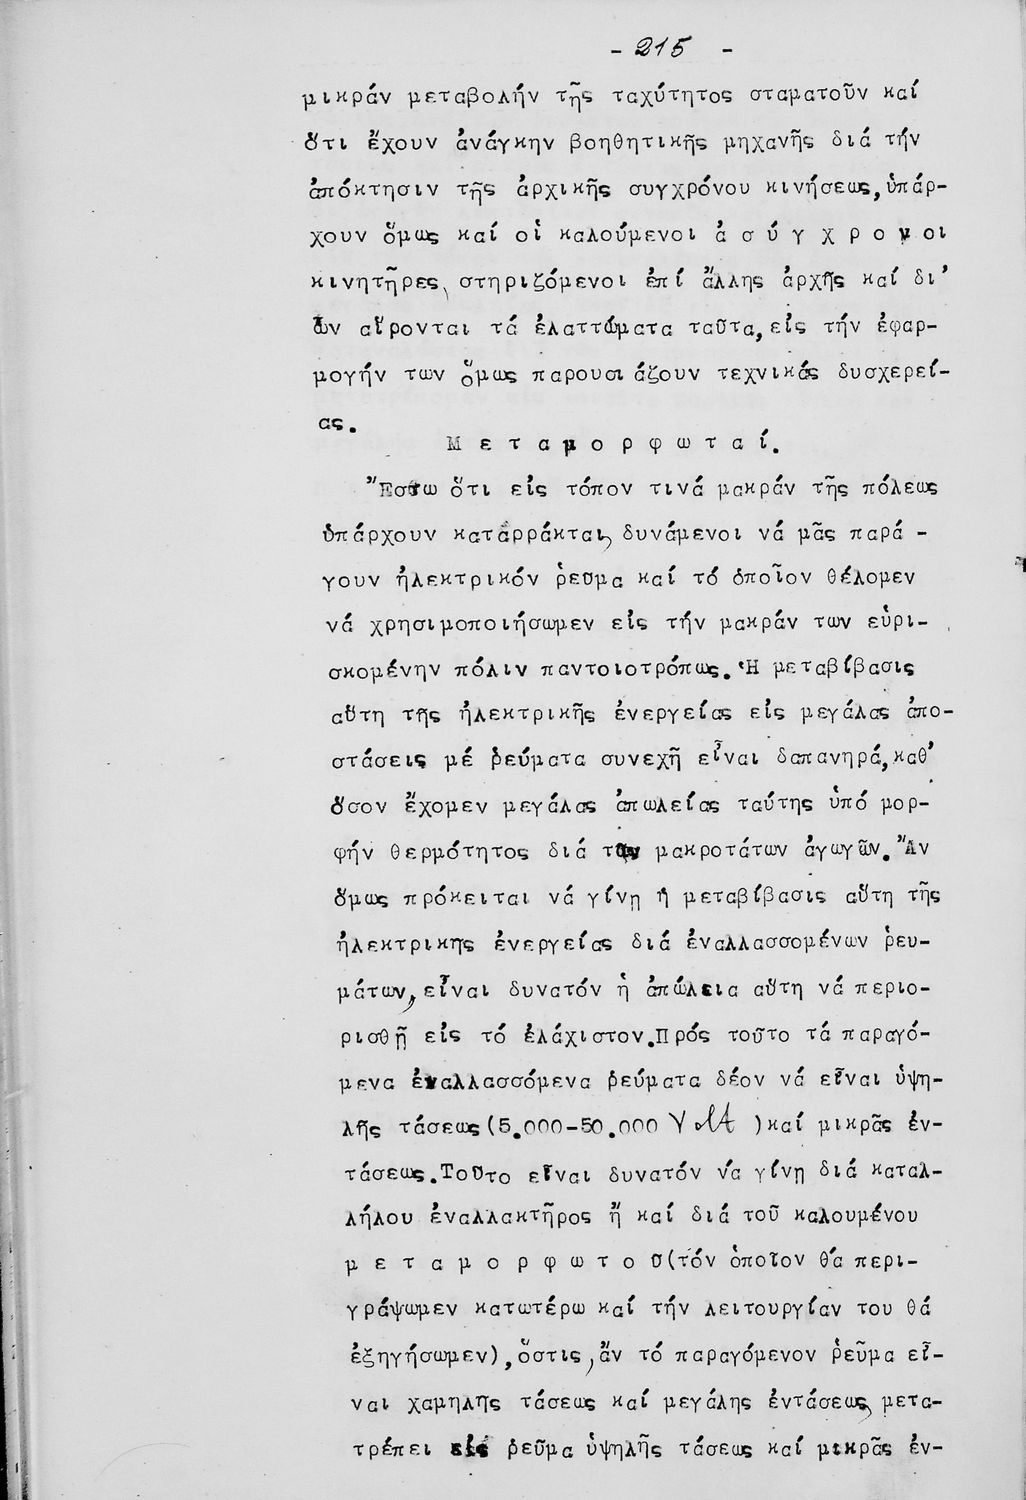 - 215 -
μικράν μεταβολήν τῆς ταχύτητος σταματοῦν καί
ὅτι ἔχουν ἀνάγκην βοηθητικῆς μηχανῆς διά τήν
ἀπόκτησιν τῆς ἀρχικῆς συγχρόνου κινήσεως, ὑπάρ-
χουν ὅμως καί οἱ καλούμενοι ἀ σ ύ γ χ ρ ο ν οι
κινητῆρες, στηριζόμενοι ἐπί ἄλλης ἀρχῆς καί δι'
ὧν αἴρονται τά ἐλαττώματα ταῦτα, εἰς τήν ἐφαρ-
μογήν των ὅμως παρουσιάζουν τεχνικάς δυσχερεί-
ας.
Μ ε τ α μ ο ρ φ ω τ α ί.
Ἔστω ὅτι εἰς τόπον τινά μακράν τῆς πόλεως
ὑπάρχουν καταρράκται, δυνάμενοι νά μᾶς παρά -
γουν ἠλεκτρικόν ῥεῦμα καί τό ὁποῖον θέλομεν
νά χρησιμοποιήσωμεν εἰς τήν μακράν των εὑρι-
σκομένην πόλιν παντοιοτρόπως. Ἡ μεταβίβασις
αὕτη τῆς ἠλεκτρικῆς ἐνεργείας εἰς μεγάλας ἀπο-
στάσεις μέ ῥεύματα συνεχῆ εἶναι δαπανηρά, καθ'
ὅσον ἔχομεν μεγάλας ἀπωλείας ταύτης ὑπό μορ-
φήν θερμότητος διά τῶν μακροτάτων ἀγωγῶν. Ἄν
ὅμως πρόκειται νά γίνῃ ἡ μεταβίβασις αὕτη τῆς
ἠλεκτρικης ἐνεργείας διά ἐναλλασσομένων ῥευ-
μάτων, εἶναι δυνατόν ἡ ἀπώλεια αὕτη νά περιο-
ρισθῇ εἰς τό ἐλάχιστον. Πρός τοῦτο τά παραγό-
μενα ἐναλλασσόμενα ῥεύματα δέον νά εἶναι ὑψη-
λῆς τάσεως (5.000-50.000 Volt ) καί μικρᾶς ἐν-
τάσεως. Τοῦτο εἶναι δυνατόν νά γίνῃ διά καταλ-
λήλου ἐναλλακτῆρος ἤ καί διά τοῦ καλουμένου
μ ε τ α μ ο ρ φ ω τ ο ῦ (τόν ὁποῖον θά περι-
γράψωμεν κατωτέρω καί τήν λειτουργίαν του θά
ἐξηγήσωμεν), ὅστις, ἄν τό παραγόμενον ῥεῦμα εἶ-
ναι χαμηλῆς τάσεως καί μεγάλης ἐντάσεως, μετα-
τρέπει εἰς ῥεῦμα ὑψηλῆς τάσεως καί μικρᾶς ἐν-